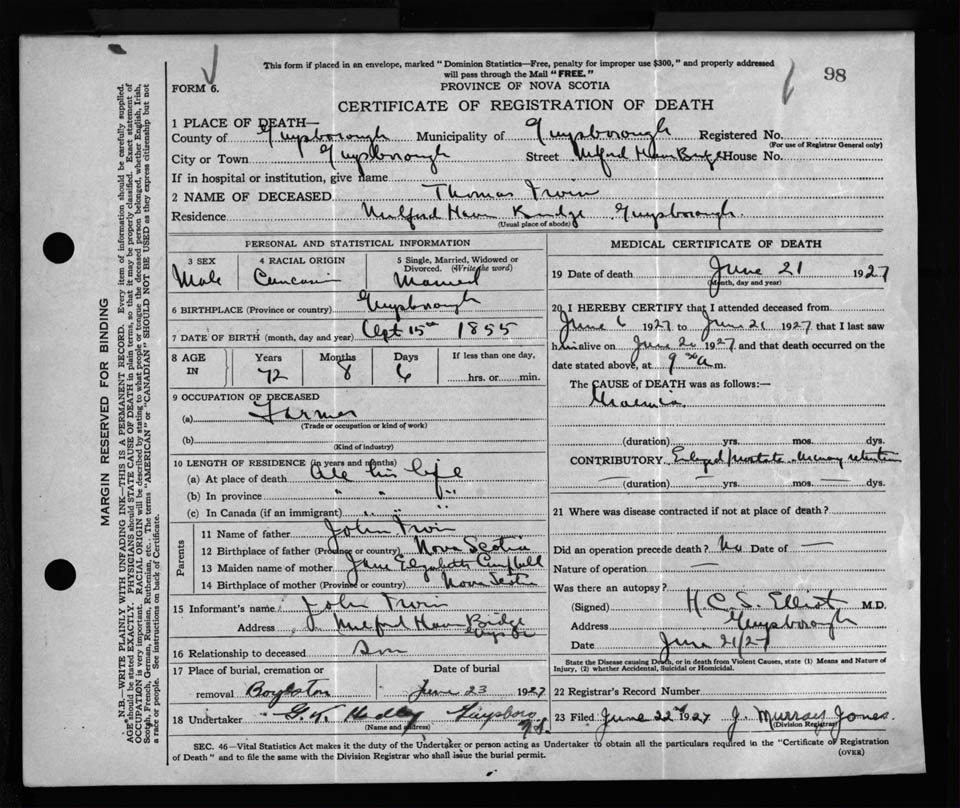 This form if placed in an envelope, marked "Dominion Statistics—Free, penalty for improper use $300," and properly addressed
will pass through the Mail "FREE."
98
FORM 6.
PROVINCE OF NOVA SCOTIA
CERTIFICATE OF REGISTRATION OF DEATH
1 PLACE OF DEATH—
County of Guysborough Municipality of Guysborough Registered No.
(For use of Registrar General only)
City or Town Guysborough Street Milford Haven Bridge House No.
If in hospital or institution, give name
2 NAME OF DECEASED Thomas Irwin
Residence Milford Haven Bridge Guysborough
(Usual place of abode)
PERSONAL AND STATISTICAL INFORMATION
3 SEX 4 RACIAL ORIGIN 5 Single, Married, Widowed or
Divorced. (Write the word)
Male Married
6 BIRTHPLACE (Province or country) Guysborough
7 DATE OF BIRTH (month, day and year) Sept 15th 1855
8 AGE IN Years Months Days If less than one day,
72 8 6 hrs. or min.
9 OCCUPATION OF DECEASED
(a) Farmer
(Trade or occupation or kind of work)
(b)
(Kind of industry)
10 LENGTH OF RESIDENCE (in years and months)
(a) At place of death all his life
(b) In province " " "
(c) In Canada (if an immigrant) " " "
Parents
11 Name of father John Irwin
12 Birthplace of father (Province or country) Nova Scotia
13 Maiden name of mother Jane Elizabeth Campbell
14 Birthplace of mother (Province or country) Nova Scotia
15 Informant's name John Irwin
Address Milford Haven Bridge
Guys Co
16 Relationship to deceased Son
17 Place of burial, cremation or Date of burial
removal Boylston June 23 1927
18 Undertaker Hadley Guysboro
N.S.
(Name and address)
MEDICAL CERTIFICATE OF DEATH
19 Date of death June 21 1927
(Month, day and year)
20 I HEREBY CERTIFY that I attended deceased from
June 6 1927 to June 21 1927 that I last saw
him alive on June 20 1927 and that death occurred on the
date stated above, at 9 a m.
The CAUSE OF DEATH was as follows:—
Uraemia
(duration) yrs. mos. dys.
CONTRIBUTORY Enlarged prostate retention
(duration) yrs. mos. dys.
21 Where was disease contracted if not at place of death?
Did an operation precede death? No Date of —
Nature of operation —
Was there an autopsy?
(Signed) H.C.S. Elliot M.D.
Address Guysborough
Date June 21/27
State the Disease causing Death, or in death from Violent Causes, state (1) Means and Nature of
Injury, (2) whether Accidental, Suicidal or Homicidal.
22 Registrar's Record Number
23 Filed June 22nd 1927 J. Murray Jones
(Division Registrar)
SEC. 46—Vital Statistics Act makes it the duty of the Undertaker or person acting as Undertaker to obtain all the particulars required in the "Certificate of Registration
of Death" and to file the same with the Division Registrar who shall issue the burial permit.
(OVER)
MARGIN RESERVED FOR BINDING
N.B.—WRITE PLAINLY WITH UNFADING INK—THIS IS A PERMANENT RECORD. Every item of information should be carefully supplied.
AGE should be stated EXACTLY. PHYSICIANS should STATE CAUSE OF DEATH in plain terms, so that it may be properly classified. Exact statement of
OCCUPATION is very important. RACIAL ORIGIN will be described by stating to what people or tongue the deceased person belonged, whether English, Irish,
Scotch, French, German, Russian, Ruthenian, etc. The terms "AMERICAN" or "CANADIAN" SHOULD NOT BE USED as they express citizenship but not
a race or people. See instructions on back of Certificate.